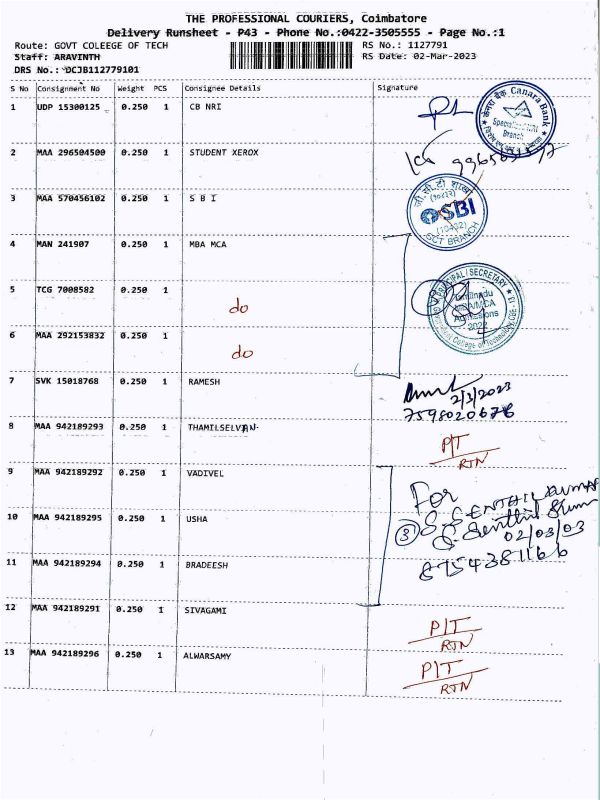 THE PROFESSIONAL COURIERS, Coimbatore
Delivery Runsheet - P43 - Phone No.:0422-3505555 - Page No.:1
Route: GOVT COLEEGE OF TECH RS No.: 1127791
Staff: ARAVINTH RS Date: 02-Mar-2023
DRS No.: DCJB112779101
S No Consignment No Weight PCS Consignee Details Signature
1 UDP 15300125 0.250 1 CB NRI
Canara Bank
Branch
2 MAA 296504500 0.250 1 STUDENT XEROX
3 MAA 570456102 0.250 1 S B I
SBI
(10432)
GCT BRANCH
4 MAN 241907 0.250 1 MBA MCA
5 TCG 7008582 0.250 1 do
PRINCIPAL/SECRETARY
Tamilnadu
MBA/MCA
Admissions
2022
Government College of Technology, CBE-13
6 MAA 292153832 0.250 1 do
7 SVK 15018768 0.250 1 RAMESH
2/3/2023
8 MAA 942189293 0.250 1 THAMILSELVAN
P/T
RTN
9 MAA 942189292 0.250 1 VADIVEL
For
SENTHIL KUMAR
10 MAA 942189295 0.250 1 USHA
3
02/03/03
11 MAA 942189294 0.250 1 BRADEESH
8754381166
12 MAA 942189291 0.250 1 SIVAGAMI
P/T
RTN
13 MAA 942189296 0.250 1 ALWARSAMY
P/T
RTN